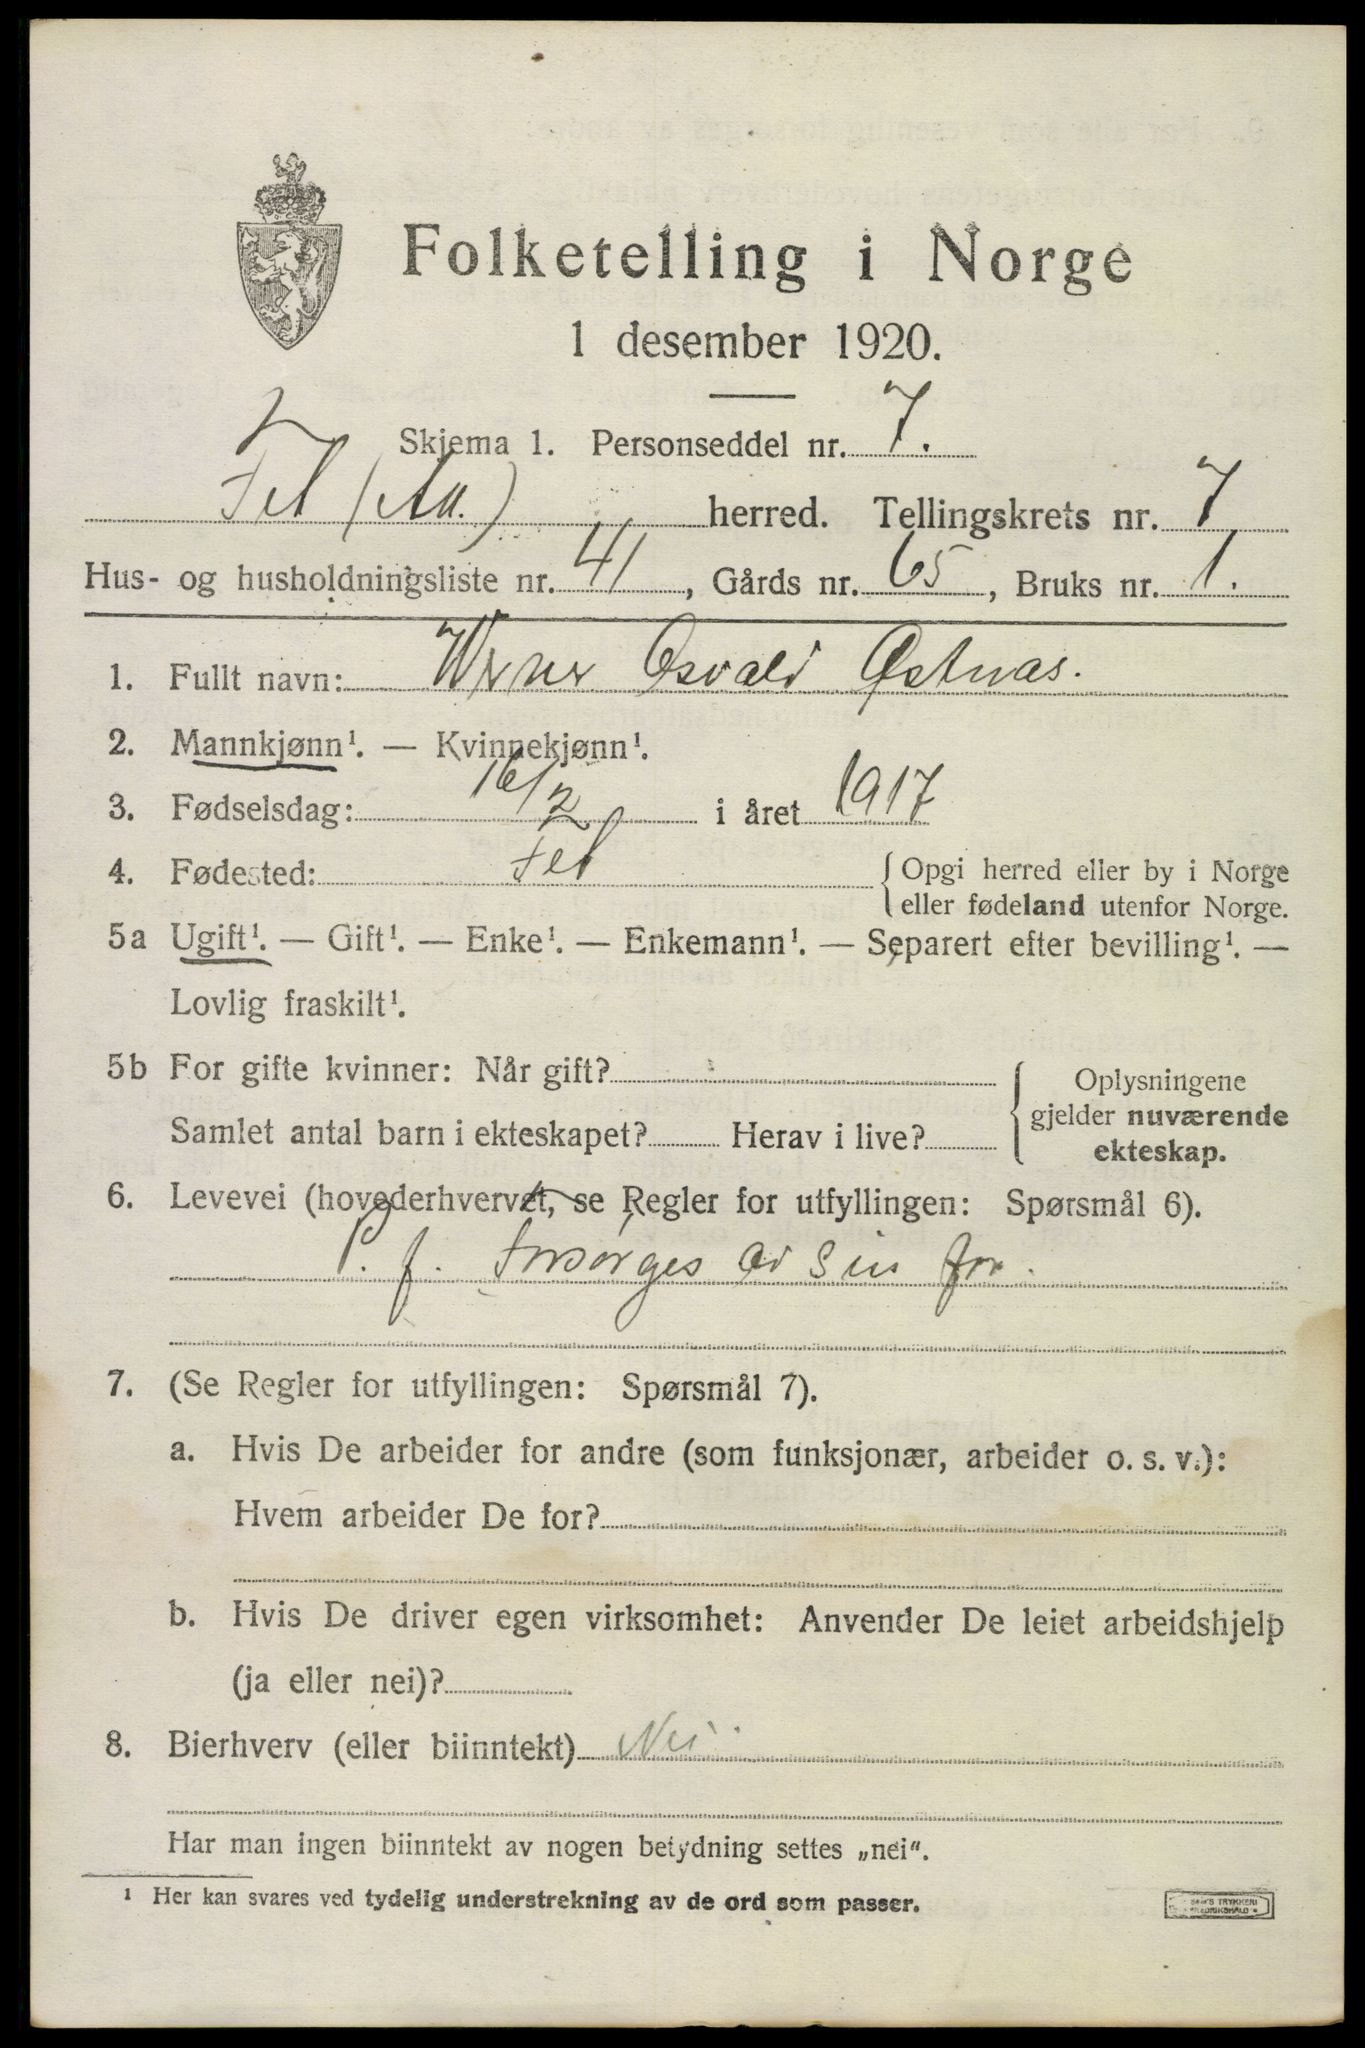 Folketelling i Norge
1 desember 1920.
Skjema 1. Personseddel nr. 7.
Fet (Ak.) herred. Tellingskrets nr. 7
Hus- og husholdningsliste nr. 41, Gårds nr. 65, Bruks nr. 1.
1. Fullt navn: Werner Osvald Østnas.
2. Mannkjønn¹. — Kvinnekjønn¹.
3. Fødselsdag: 16/2 i året 1917
4. Fødested: Fet {Opgi herred eller by i Norge
eller fødeland utenfor Norge.
5a Ugift¹. — Gift¹. — Enke¹. — Enkemann¹. — Separert efter bevilling¹. —
Lovlig fraskilt¹.
5b For gifte kvinner: Når gift? {Oplysningene
gjelder nuværende
Samlet antal barn i ekteskapet? Herav i live?
ekteskap.
6. Levevei (hovederhvervet, se Regler for utfyllingen: Spørsmål 6).
P. f. Forsørges av sin far.
7. (Se Regler for utfyllingen: Spørsmål 7).
a. Hvis De arbeider for andre (som funksjonær, arbeider o. s. v.):
Hvem arbeider De for?
b. Hvis De driver egen virksomhet: Anvender De leiet arbeidshjelp
(ja eller nei)?
8. Bierhverv (eller biinntekt) Nei
Har man ingen biinntekt av nogen betydning settes „nei“.
¹ Her kan svares ved tydelig understrekning av de ord som passer.
TRYKKERI
FREDRIKSHALD